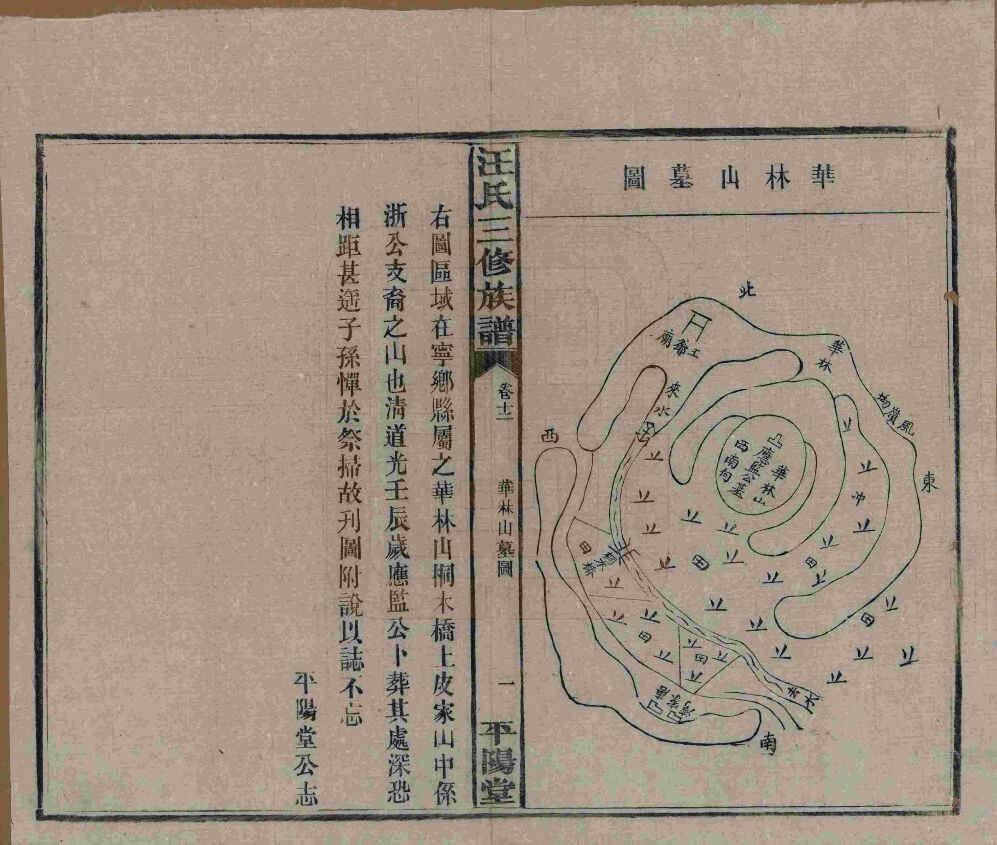 華林山墓圖
北
華林
風嶺坳
東
南
西
廟
來水
華林山
應監公墓
西南向
冲
田
田
田
田
田
田
桐木橋
去水
汪氏三修族譜
卷十二
華林山墓圖
一
平陽堂
右圖區域在寧鄉縣屬之華林山桐木橋上皮家山中係
浙公支裔之山也清道光壬辰歲應監公卜葬其處深恐
相距甚遥子孫憚於祭掃故刊圖附說以誌不忘
平陽堂公志